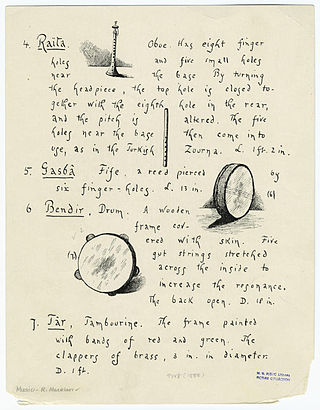 4. Raita. Oboe. Has eight finger
holes and five small holes
near the base By turning
the headpiece, the top hole is closed to-
gether with the eighth hole in the rear,
and the pitch is altered. The five
holes near the base then come into
use, as in the Turkish Zourna. L. 1 ft. 2 in.
5. Gasbâ Fife, a reed pierced by
six finger-holes. L. 13 in.
(6)
6 Bendir, Drum. A wooden
frame cov-
ered with skin. Five
(7)
gut strings stretched
across the inside to
increase the resonance.
The back open. D. 18 in.
7. Târ, Tambourine. The frame painted
with bands of red and green. The
clappers of brass, 3 in. in diameter.
D. 1 ft.
N. Y. PUBLIC LIBRARY
PICTURE COLLECTION